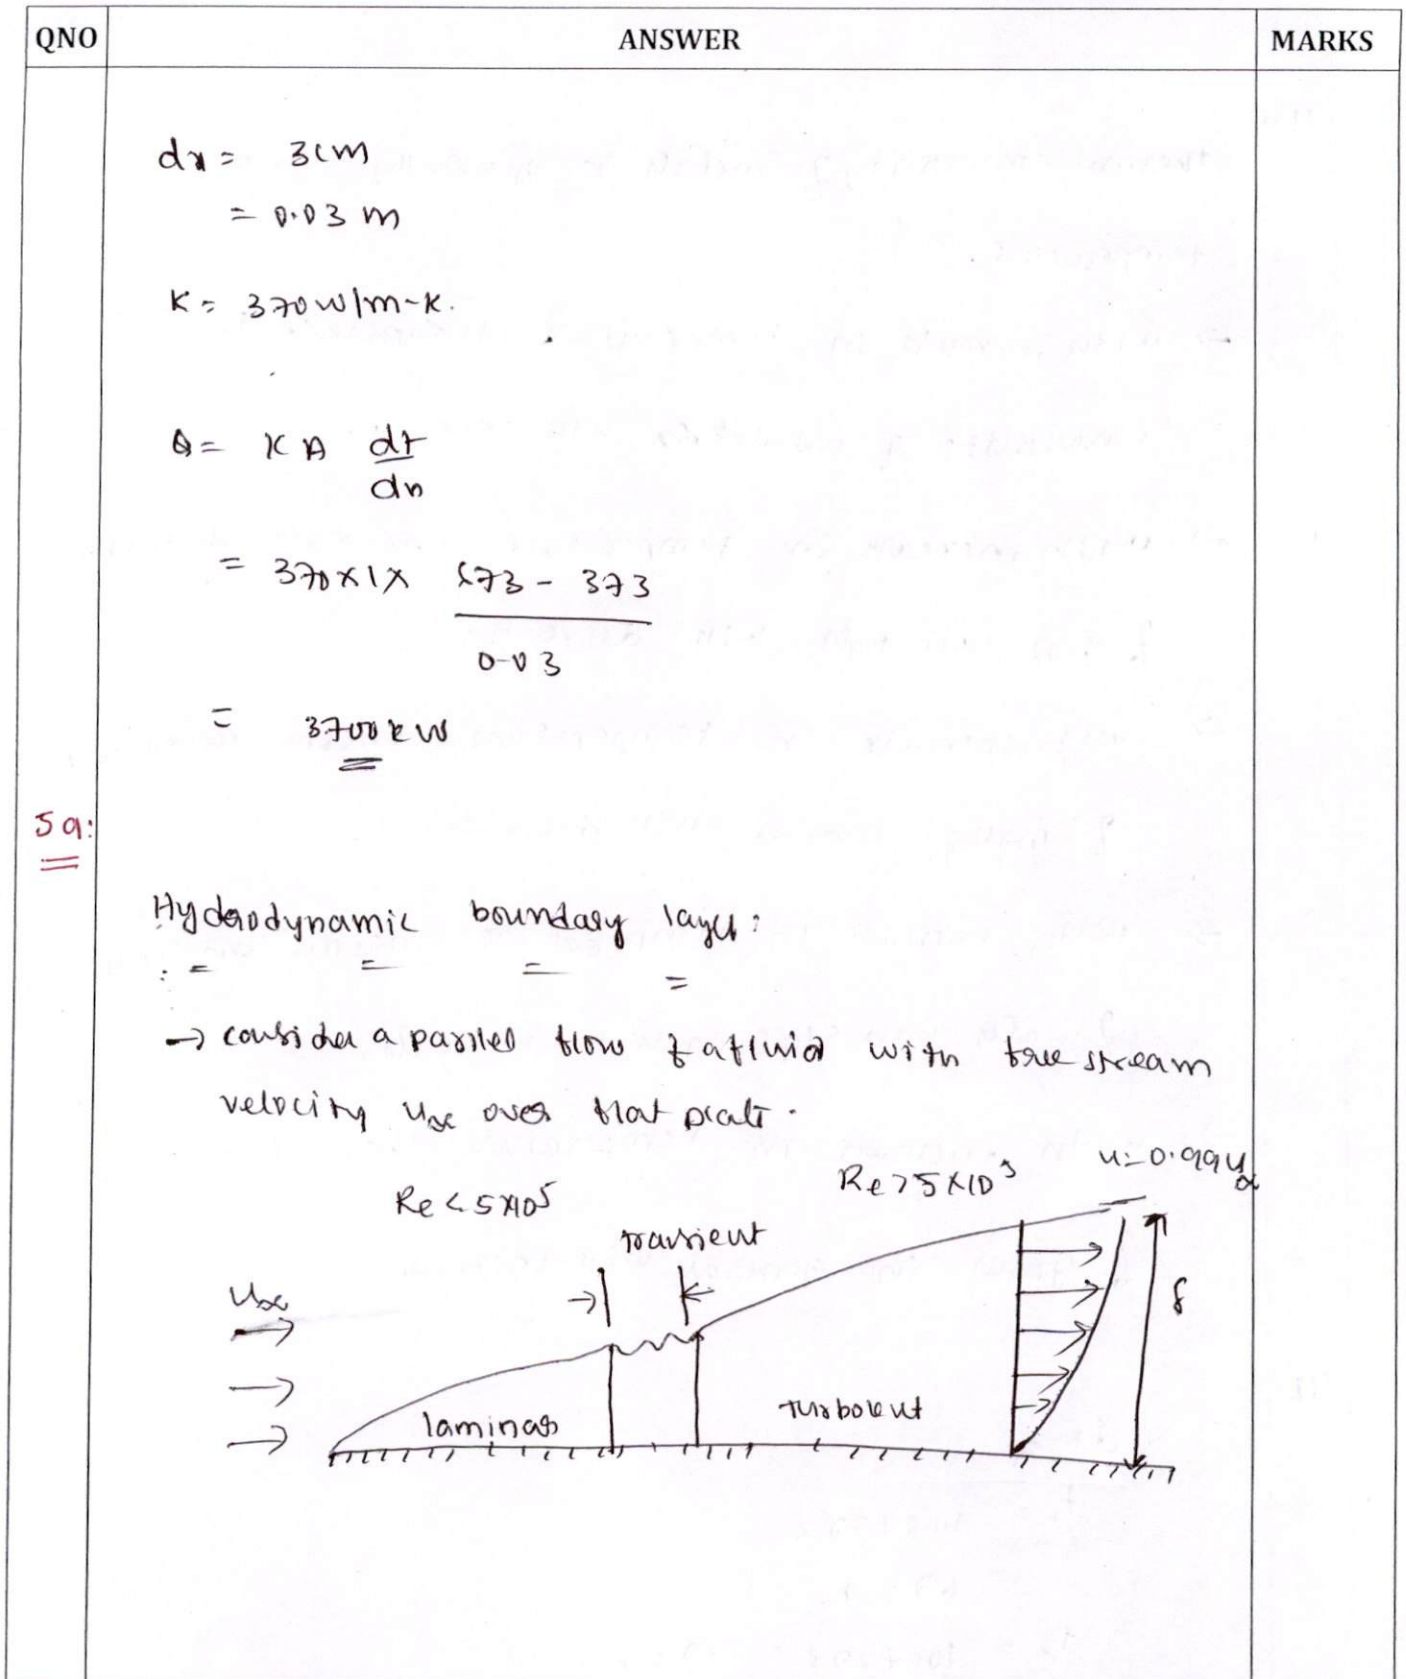 QNO ANSWER MARKS
dx = 3cm
= 0.03 m
K = 370 W/m-K.
Q = K A dt
dx
= 370 x 1 x 673 - 373
0.03
= 3700 kW
5a:
Hydrodynamic boundary layer:
→ consider a parllel flow of a fluid with free stream
velocity u∝ over flat plate.
u = 0.99u∝
Re > 5x10⁵
Re < 5x10⁵
transient
u∝
δ
laminar
turbolent